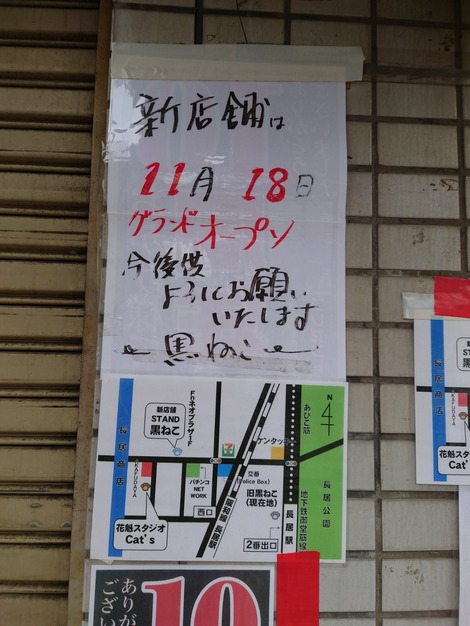 新店舗は
11月 18日
グランドオープン
今後供
よろしくお願い
いたします
黒ねこ
長居商店
新店舗
STAND
黒ねこ
FnネオプラザーF
KAFUDAYA
花魁スタジオ
Cat's
パチンコ
NET
WORK
西口
阪和線
長居駅
7
ケンタッ
交番
(Police Box)
旧黒ねこ
(現在地)
2番出口
長居駅
地下鉄御堂筋線
あびこ筋
長居公園
N
4
長居商店
KAFUDAYA
花魁スタ
Cat's
ありが
ござい
10